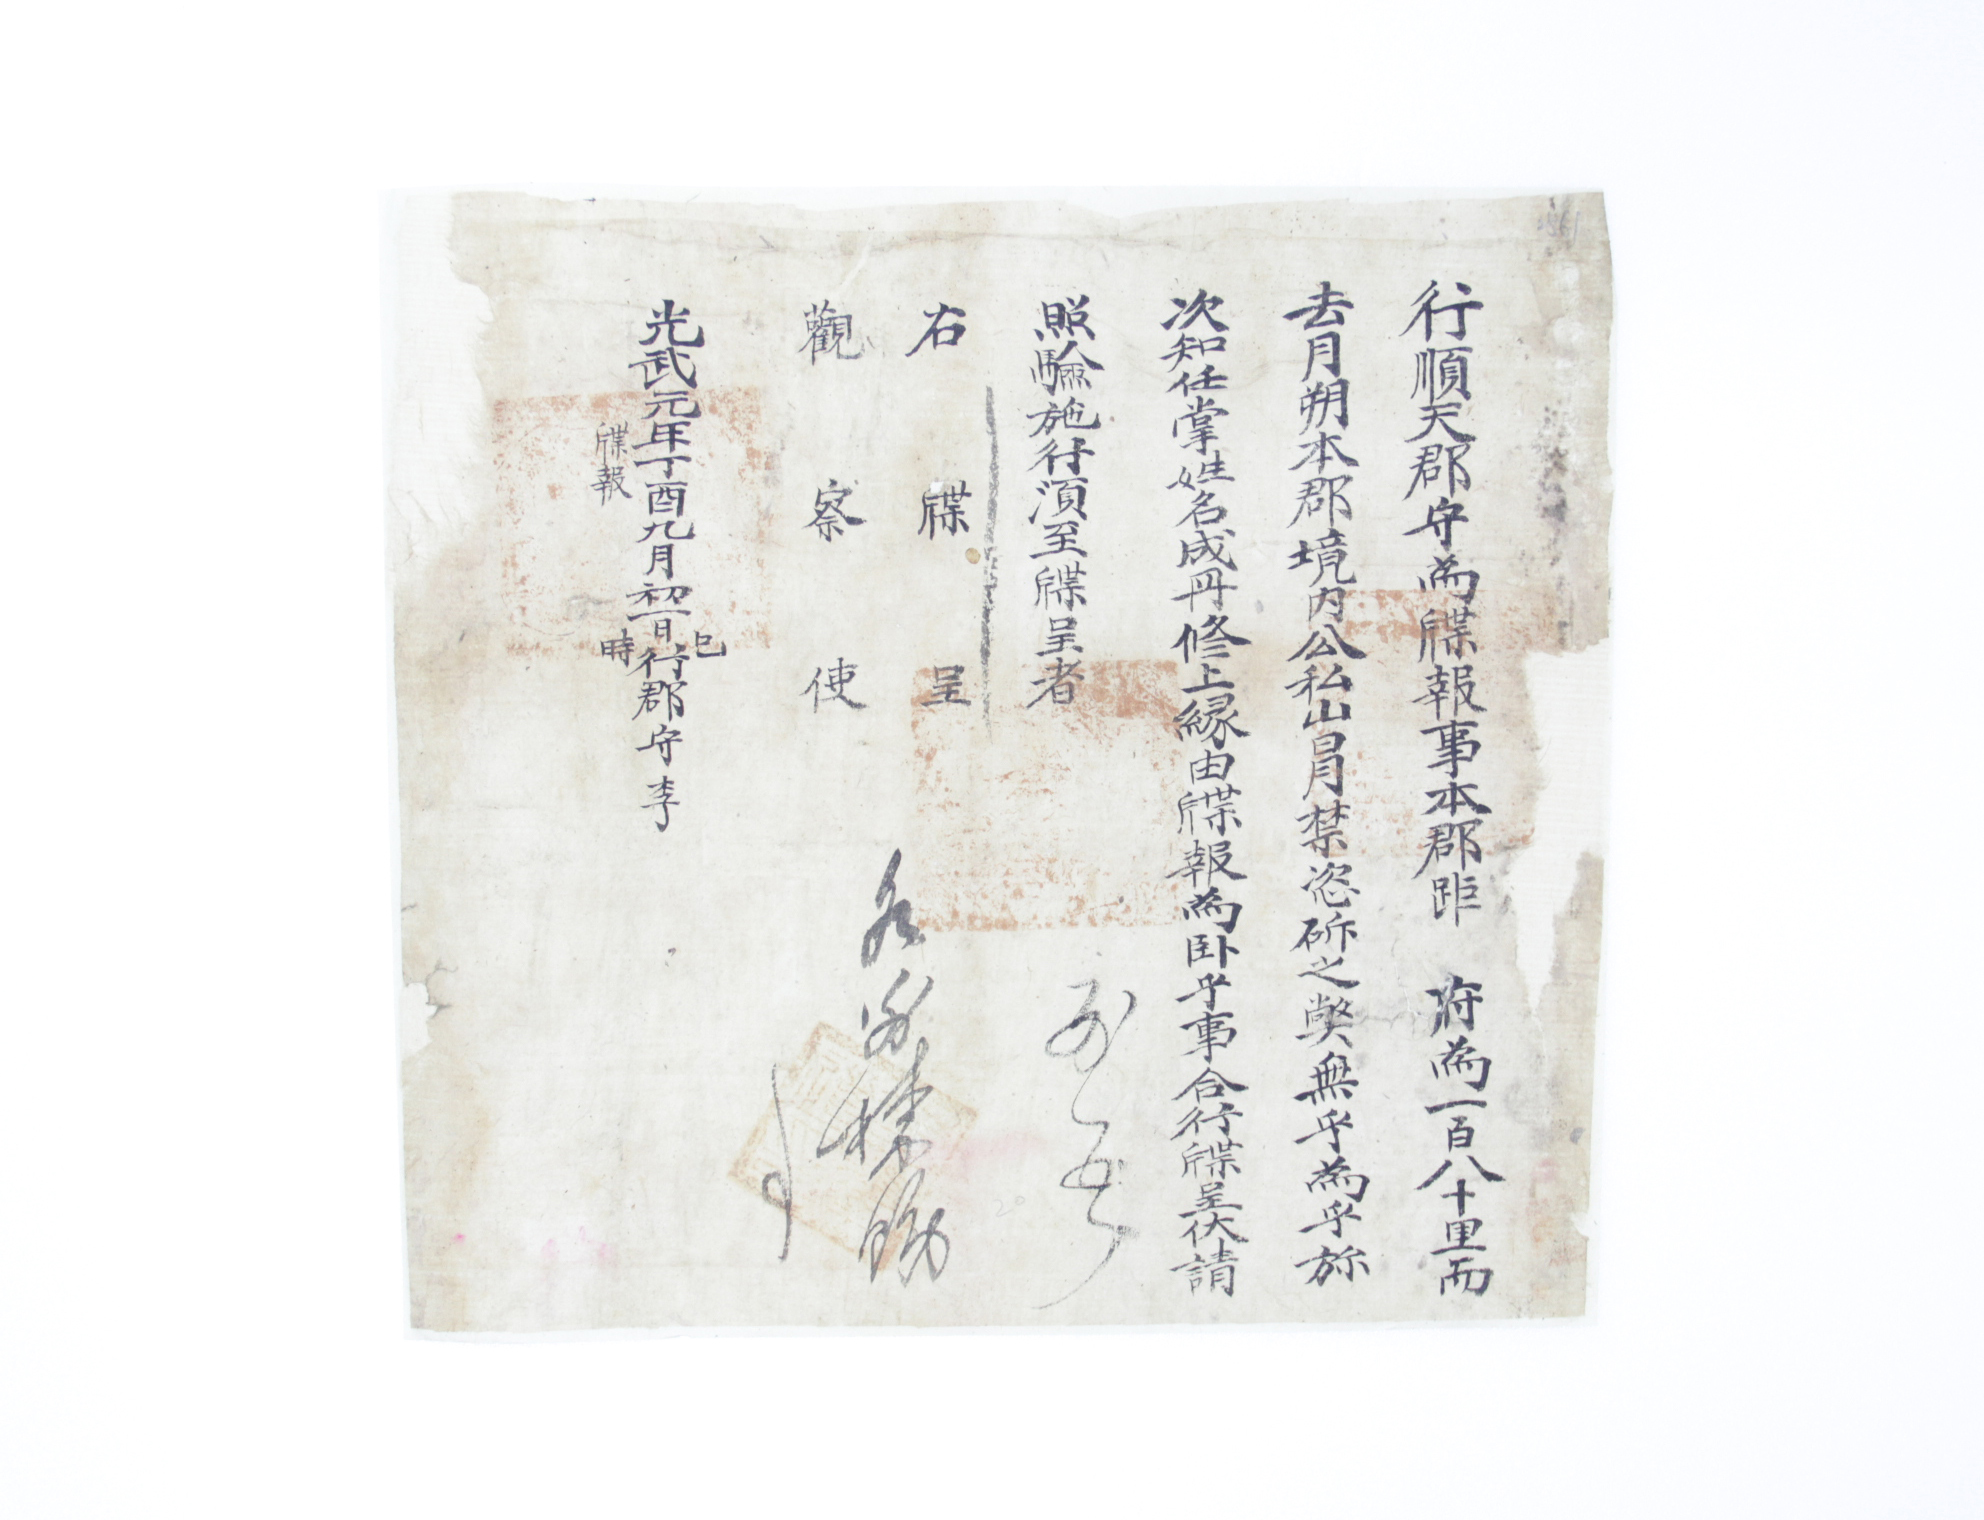 行順天郡守為牒報事本郡距 府為一百八十里而
去月朔本郡境内公私山冒禁恣斫之弊無乎為乎旀
次知任掌姓名成冊修上縁由牒報為卧乎事合行牒呈伏請
照驗施行湏至牒呈者
右牒呈
觀察使
光武元年丁酉九月初一日巳時行郡守李
牒報